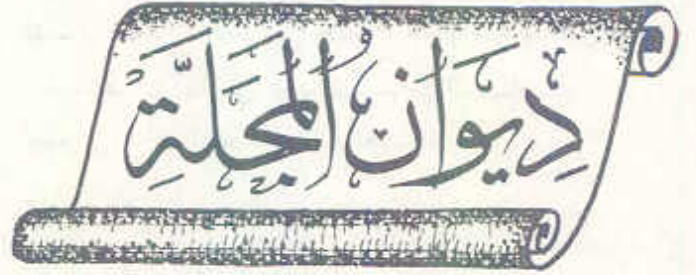 دِيوَانُ المَجَلَّةِ